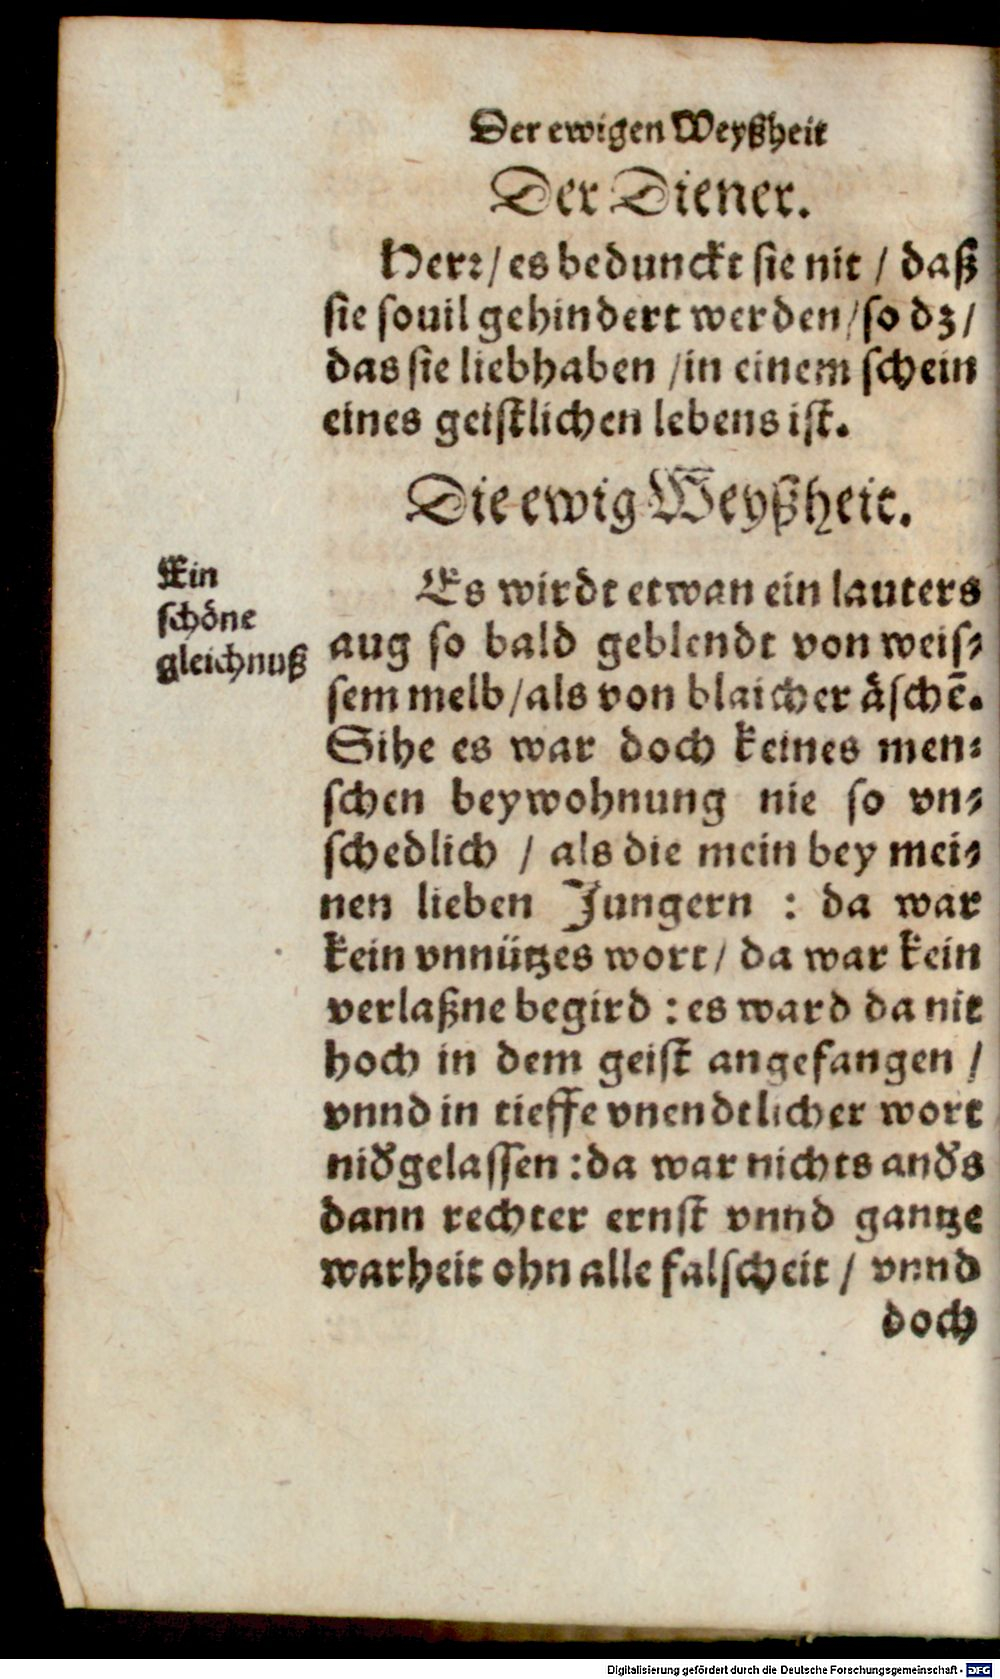 Der ewigen Weyßheit
Der Diener.
Herꝛ/ es bedunckt sie nit / daß
sie souil gehindert werden/ so dz/
das sie liebhaben /in einem schein
eines geistlichen lebens ist.
Die ewig Weyßheit.
Ein
schöne
gleichnuß
Es wirdt etwan ein lauters
aug so bald geblendt von weis⸗
sem melb/als von blaicher äschē.
Sihe es war doch keines men⸗
schen beywohnung nie so vn⸗
schedlich / als die mein bey mei⸗
nen lieben Jungern : da war
kein vnnützes wort/ da war kein
verlaßne begird : es ward da nit
hoch in dem geist angefangen /
vnnd in tieffe vnendtlicher wort
nid̕gelassen :da war nichts and̕s
dann rechter ernst vnnd gantze
warheit ohn alle falscheit / vnnd
doch
Digitalisierung gefördert durch die Deutsche Forschungsgemeinschaft - DFG